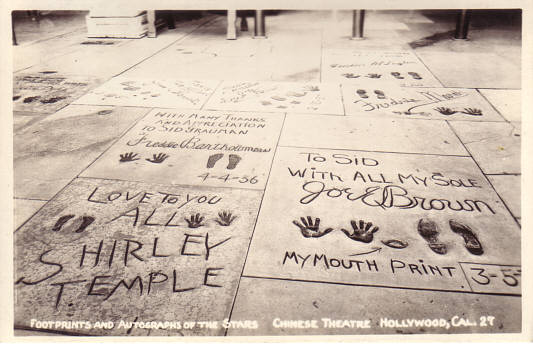 Fredric March
With Many Thanks
and Appreciation
to Sid Grauman
Freddie Bartholomew
4-4-36
Love to You
All
Shirley
Temple
To Sid
With All My Sole
Joe E Brown
My Mouth Print
3-5
Footprints and Autographs of the Stars Chinese Theatre Hollywood, Cal. 27